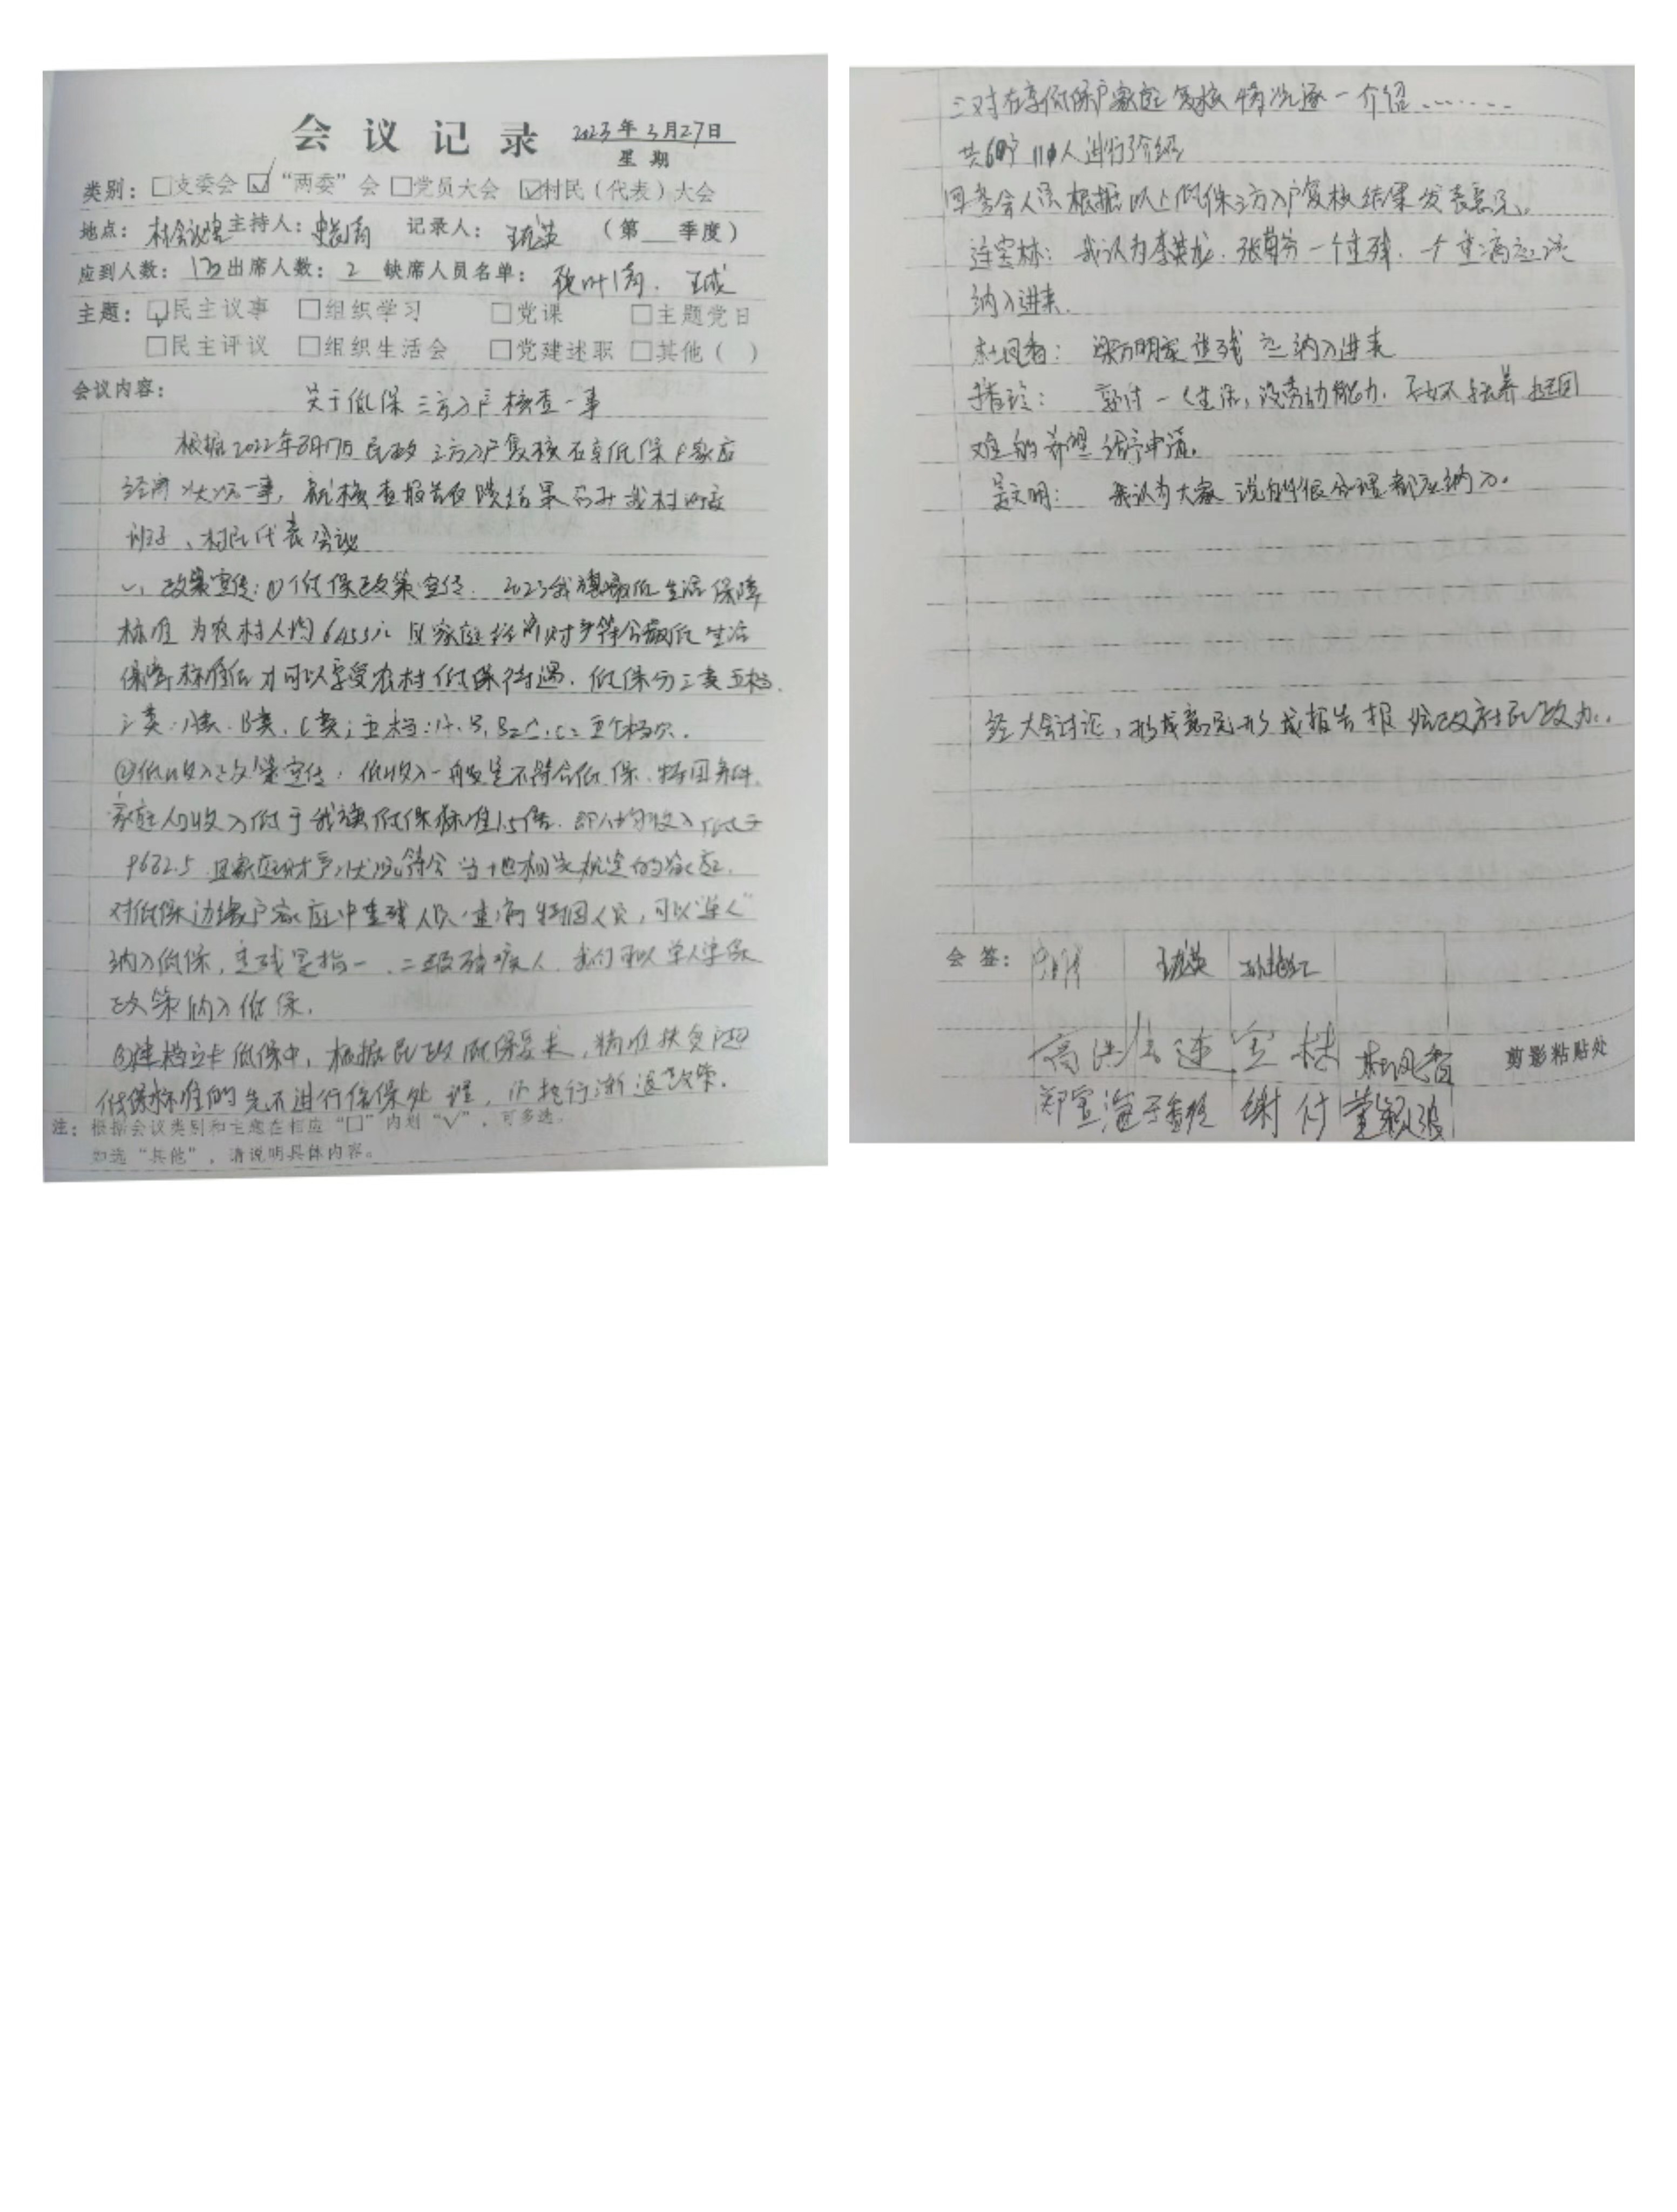 会议记录 2023年3月27日
星期
类别：□支委会 ☑“两委”会 □党员大会 ☑村民（代表）大会
地点：村会议室 主持人： 记录人： （第__季度）
应到人数： 出席人数：2 缺席人员名单：
主题：☑民主议事 □组织学习 □党课 □主题党日
□民主评议 □组织生活会 □党建述职 □其他（ ）
会议内容：
关于低保三方入户核查一事
根据2022年3月17日民政三方入户复核在享低保户家庭
经济状况一事，就核查报告反馈结果召开我村两委
班子、村民代表会议
一、政策宣传：①低保政策宣传．2023我旗最低生活保障
标准为农村人均6455元且家庭经济财产符合最低生活
保障标准后才可以享受农村低保待遇．低保分三类五档．
三类：A类．B类．C类；五档：A．B1 B2 C1 C2 五个档次．
②低收入政策宣传，低收入一般是不符合低保．特困条件．
家庭人均收入低于我旗低保标准1.5倍．即人均收入低于
9682.5 且家庭财产状况符合当地相关规定的家庭．
对低保边缘户家庭中重残人员、重病特困人员，可以“单人”
纳入低保，重残是指一．二级残疾人．我们可以单人单保
政策纳入低保．
③建档立卡低保中，根据民政低保要求，精准扶贫户超
低保标准的先不进行停保处理，仍执行渐退政策．
注：根据会议类别和主题在相应“□”内划“√”，可多选。
如选“其他”，请说明具体内容。
三对在享低保户家庭复核情况逐一介绍………
共60户110人进行了介绍
四参会人员根据以上低保三方入户复核结果发表意见．
连宝林：我认为李英龙．张菊芳一个重残．一个重病应该
纳入进来．
杜凤香：梁万明家重残应纳入进来
于香玲：郭付一人生活，没劳动能力．子女不扶养挺困
难的希望给予申请．
吴文明：我认为大家说的很合理都应纳入。
经大会讨论，形成意见形成报告报给政府民政办．
会签：
高洪 连宝林 杜凤香 剪影粘贴处
于香玲 谢付